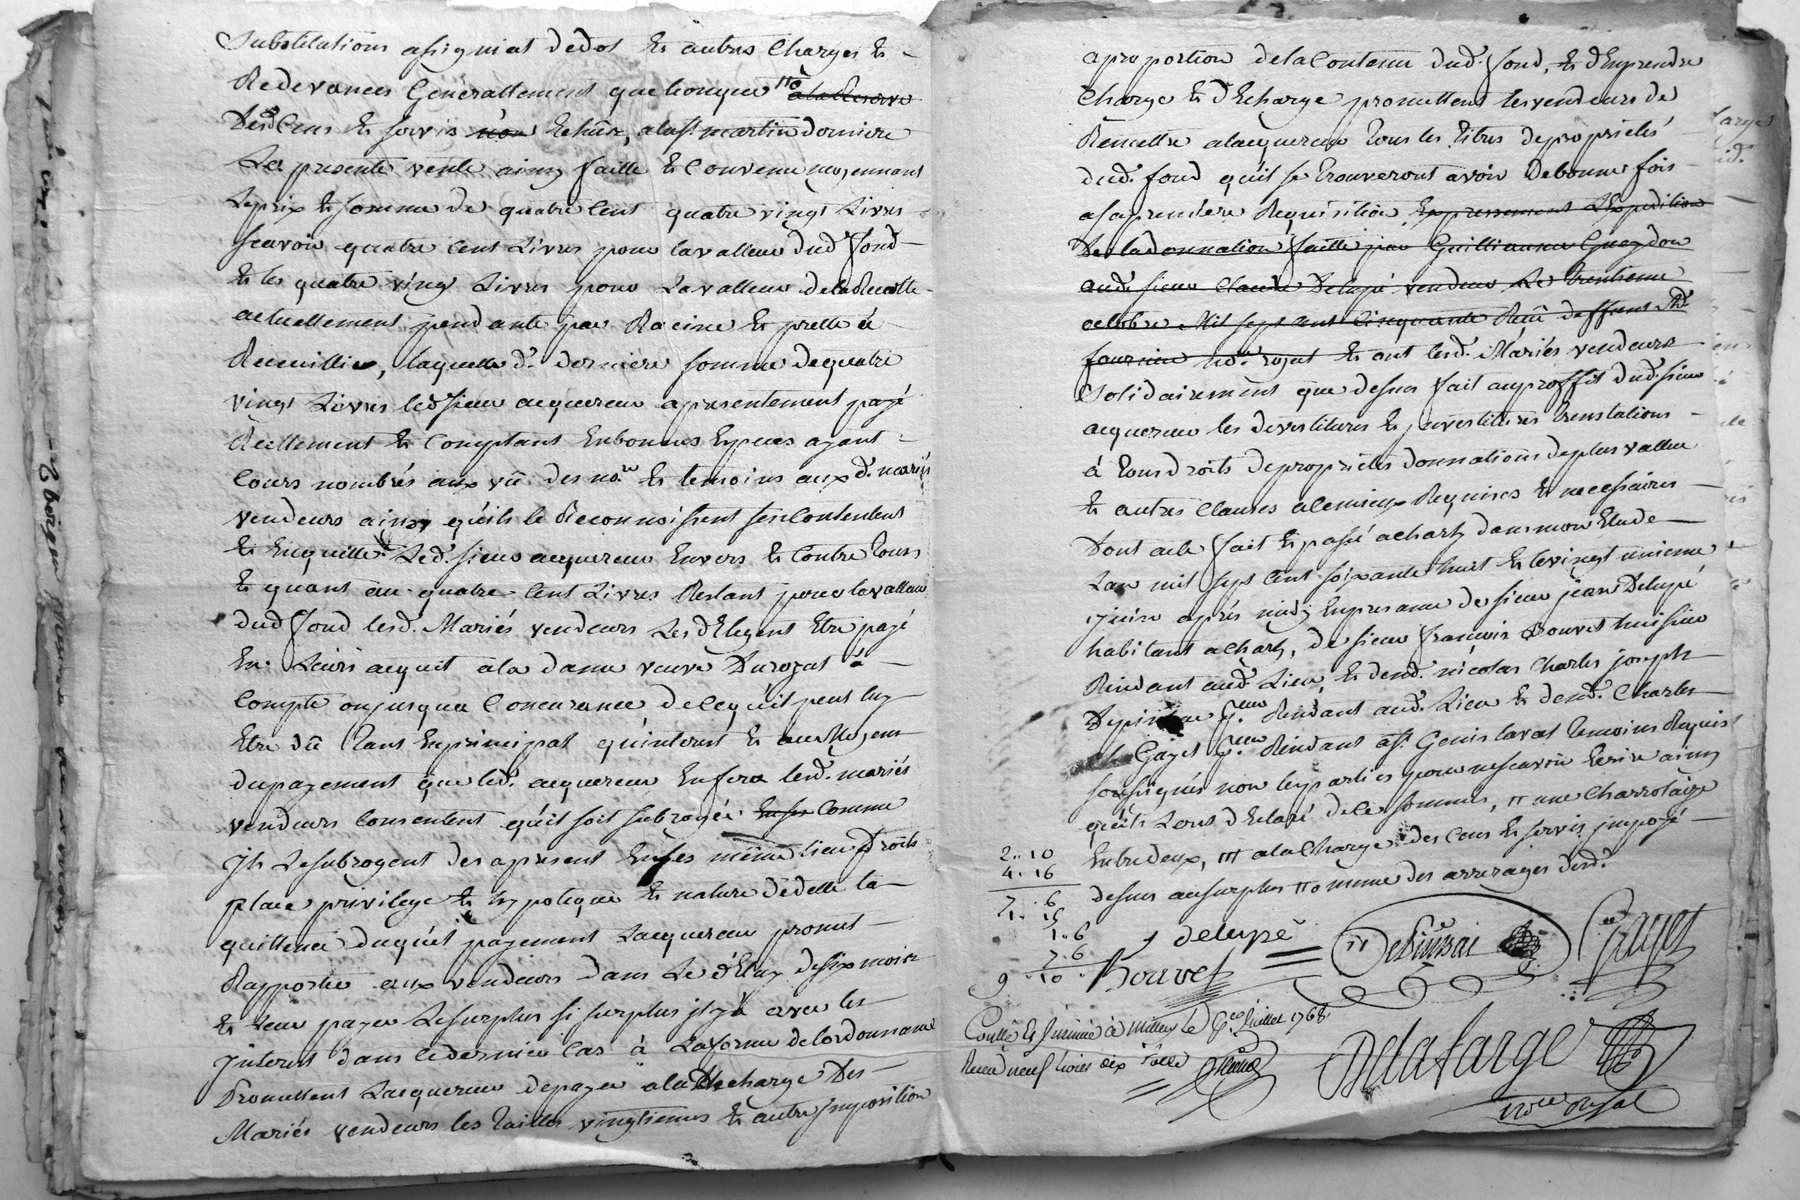 Substitutions assignat de dot Et autres Charges Et
Redevances Generallement quelconques ııo a la Reserve
Desd. Cens Et servis non Echus, a la st martin derniere
La presente vente ainsy faitte Et Convenu moyennant
Le prix Et somme de quatre Cent quatre vingt Livres
scavoir quatre cent Livres pour la valleur dud fond
Et les quatre vingt Livres pour La valleur de la Recolte
actuellement pendante par Racine Et prette à
Recueillir, laquelle d. derniere somme de quatre
vingt Livres led sieur acquereur a presentement payé
Reellement Et Comptant En bonnes Especes ayant
Cours nombrés aux vû des no.re Et temoins aux d. mariés
vendeurs ainsy qu'ils le Reconnoissent s'en Contentent
Et En quitte Led. sieur acquereur Envers Et Contre Tous
Et quant au quatre Cent Livres Restant pour la valleur
dud fond lesd. Mariés vendeurs Les deleguent Etre payé
En Leurs acquit a la dame veuve Durozat à
Compte ou jusqua Concurance de ce qu'il peut luy
Etre dû Tant En principal qu'interest Et au Moyen
du payement que led. acquereur En fera lesd. mariés
vendeurs Consentent qu'il soit subrogé En ses Comme
jls Le subrogent des a present En ses même lieu droits
place privilege Et hypoteque Et nature de delle la
quittence duquel payement Lacquereur promet
Rapporter aux vendeurs dans Le delay de six mois
Et Leur payer Le surplus si surplus jl y a avec les
jnterest dans ce dernier Cas à La forme de lordonnance
Promettent Lacquereur de payer a la decharge Des
Mariés vendeurs les Tailles vingtiemes Et autre jmposition
a proportion de la Contenu dud. fond, Et d'En prendre
Charge Et decharge promettent les vendeurs de
Remettre a lacquereur Tous les titres de proprietés
dud. fond qu'il se Trouveront avoir De bonne fois
a sa premiere Requisition Expressement L'Expedition
De la donnation faitte par Guillaume
aud. sieur Claude Delupé vendeur Le Trentieme
octobre Mil sept cent Cinquante Reçu deffunt Me
fournier no.re royal Et ont lesd. Mariés vendeurs
Solidairement que dessus fait au proffit dud. sieur
acquereur les devestitures Et jnvestitures Translations
à Tous droits de proprietés donnations de plus valleur
Et autres Clauses a ce mieux Requises Et necessaires
Dont acte fait Et passé a dans mon Etude
Lan mil sept Cent soixante huit Et le vingt unieme
juin après midy En presence de sieur jean Delupé
habitant a , de sieur françois Bouvet huissier
Residant aud. Lieu, Et de nicolas Charles joseph
Depi Residant aud. Lieu Et de Charles
Gayet Residant a st. Genis laval Temoins Requis
soussignés non les parties pour ne scavoir Ecrire ainsy
qu'ils Lont declaré de ce sommés, ıı une
Entre deux, ııı a la Charge des Cens Et servis jmposé
dessus au surplus ııo meme des arrerages desd.
2.. 10
4. 16
7. 6
1. 15
1.. 6
7. 6
9 . 10 .
J delupé
Bouvet
Gayet
Collé Et à millery le 6 Juillet 1768
Recu neuf livres dix solz
Delafarge
no.re royal